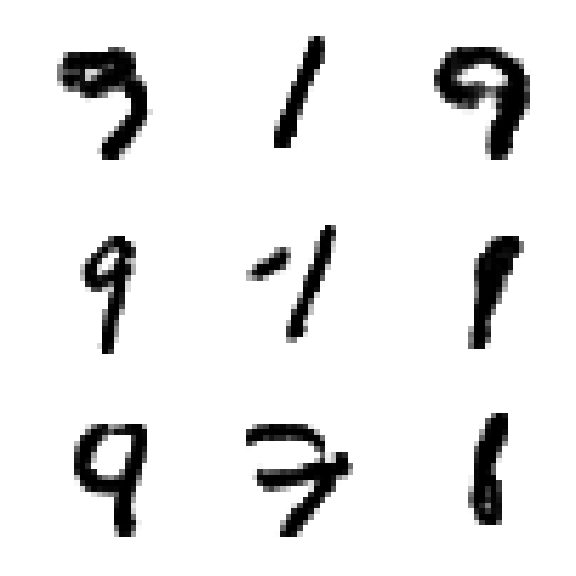 9 1 9
9 1
9 7 6